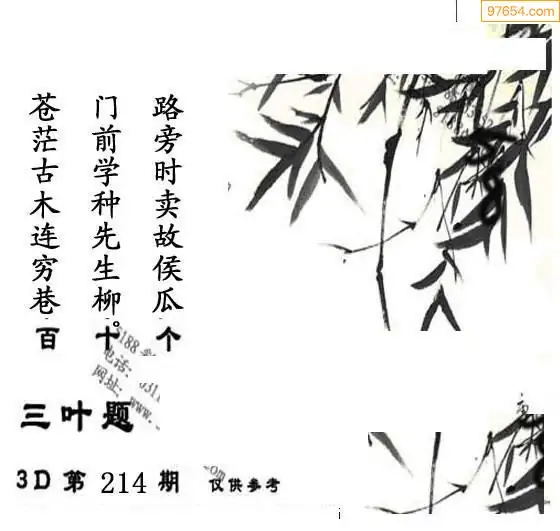 97654.com
路旁时卖故侯瓜
门前学种先生柳。
苍茫古木连穷巷
百 十 个
5188
电话：0311
网址：www.
三叶题
3D第214期 仅供参考
.com